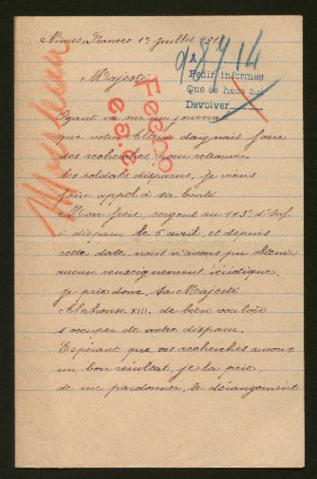 Nimes France 1er juillet 191
98714
A
Pedir informes
Que se haca así
Devolver
Majesté
Fecho
e.a.c.
Ayant vu sur un journal
que votre Altesse daignait faire
des recherches pour retrouver
les soldats disparus, je viens
faire appel à sa bonté
Mon frère, sergent au 143e d'Inf.
a disparu le 5 avril, et depuis
cette date nous n'avons pu obtenir
aucun renseignement véridique.
je prie donc Sa Majesté
Alphonse XIII. de bien vouloir
s'occuper de notre disparu.
Espérant que ces recherches auront
un bon résultat, je la prie
de me pardonner, le dérangement